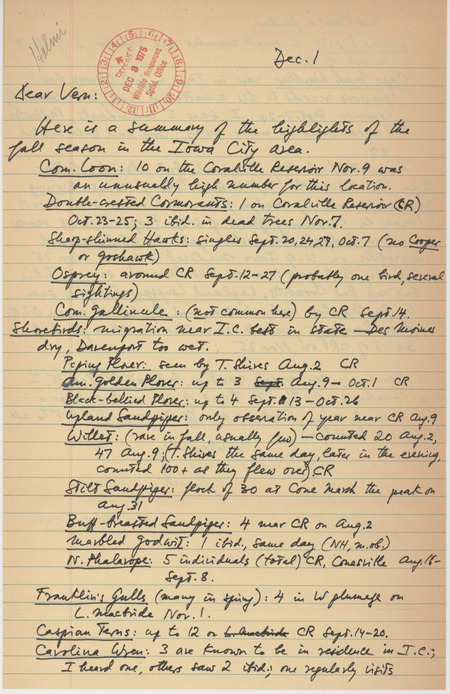 Helmi
DEC 8 1975
Wildlife Resources
Spfd. Office
Dec. 1
Dear Vern:
Here is a summary of the highlights of the
fall season in the Iowa City area.
Com. Loon: 10 on the Coralville Reservoir Nov. 9 was
an unusually high number for this location.
Double-crested Cormorants: 1 on Coralville Reservoir (CR)
Oct. 23-25; 3 ibid. in dead trees Nov. 7.
Sharp-shinned Hawks: singles Sept. 20, 24, 29, Oct. 7 (no Cooper
or goshawk)
Osprey: around CR Sept. 12-27 (probably one bird, several
sightings)
Com. gallinule: (not common here) by CR Sept 14.
Shorebirds: migration near I.C. best in state - Des Moines
dry, Davenport too wet.
Piping Plover: seen by T. Shires Aug. 2 CR
Am. Golden Plover: up to 3 Sept. Aug. 9 - Oct. 1 CR
Black-bellied Plover: up to 4 Sept. 13 - Oct. 26
Upland Sandpiper: only observation of year near CR Aug. 9
Willet: (rare in fall, usually few) - counted 20 Aug. 2,
47 Aug. 9; (T. Shires the same day, later in the evening,
counted 100+ as they flew over) CR
Stilt Sandpiper: flock of 30 at Cone Marsh the peak on
Aug. 31
Buff-breasted Sandpiper: 4 near CR on Aug. 2
Marbled godwit: 1 ibid., same day (NH, m.ob.)
N. Phalarope: 5 individuals (total) CR, Conesville Aug. 16-
Sept. 8.
Franklin's Gulls (many in spring): 4 in W plumage on
L. Macbride Nov. 1.
Caspian Terns: up to 12 on L. Macbride CR Sept. 14-20.
Carolina Wren: 3 are known to be in residence in I.C.;
I heard one, others saw 2 ibid.; one regularly visits